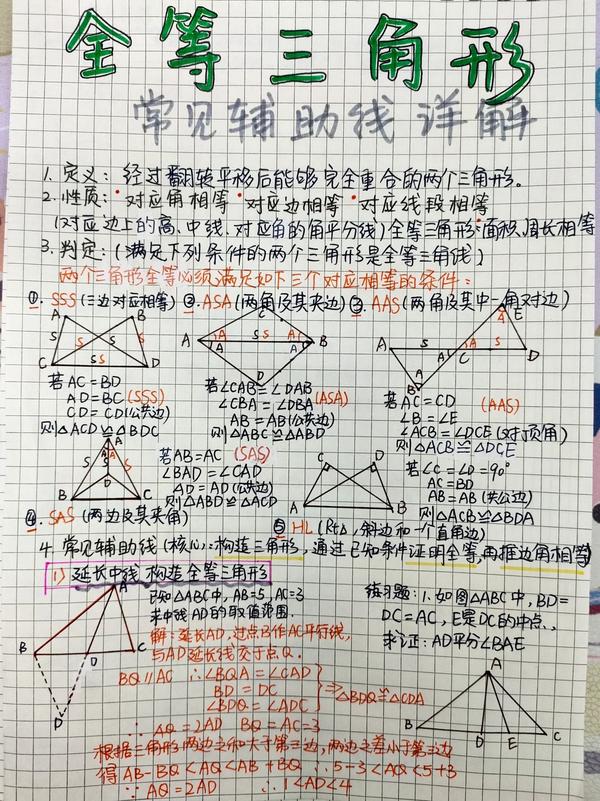 全等三角形
常见辅助线详解
1. 定义：经过翻转平移后能够完全重合的两个三角形。
2. 性质：·对应角相等 ·对应边相等 ·对应线段相等
(对应边上的高、中线、对应角的角平分线)全等三角形:面积、周长相等
3. 判定：(满足下列条件的两个三角形是全等三角线)
两个三角形全等必须满足如下三个对应相等的条件：
①. SSS(三边对应相等) ②. ASA(两角及其夹边) ③. AAS(两角及其中一角对边)
A B S S S S S S C D
C A A S S A A B D
A S C S D E A A B
若AC=BD
AD=BC (SSS)
CD=CD(公共边)
则△ACD≌△BDC
若∠CAB=∠DAB
∠CBA=∠DBA (ASA)
AB=AB(公共边)
则△ABC≌△ABD
若AC=CD (AAS)
∠B=∠E
∠ACB=∠DCE(对顶角)
则△ABC≌△DCE
A S S A A D B C
若AB=AC (SAS)
∠BAD=∠CAD
AD=AD(公共边)
则△ABD≌△ACD
C D A B
若∠C=∠D=90°
AC=BD
AB=AB(共公边)
则△ACB≌△BDA
④. SAS(两边及其夹角) ⑤ HL(Rt△,斜边和一个直角边)
4. 常见辅助线(核心:构造三角形，通过已知条件证明全等,再推边角相等)
1) 延长中线 构造全等三角形
A B D C D
已知△ABC中,AB=5,AC=3
求中线AD的取值范围.
解:延长AD,过点B作AC平行线,
与AD延长线交于点Q.
BQ∥AC ∴∠BQA=∠CAD
BD=DC
∠BDQ=∠ADC
⇒△BDQ≌△CDA
∴AQ=2AD BQ=AC=3
根据三角形两边之和大于第三边,两边之差小于第三边
得AB-BQ<AQ<AB+BQ ∴5-3<AQ<5+3
∵AQ=2AD ∴1<AD<4
练习题:1.如图△ABC中,BD=
DC=AC,E是DC的中点.
求证:AD平分∠BAE
A B D E C